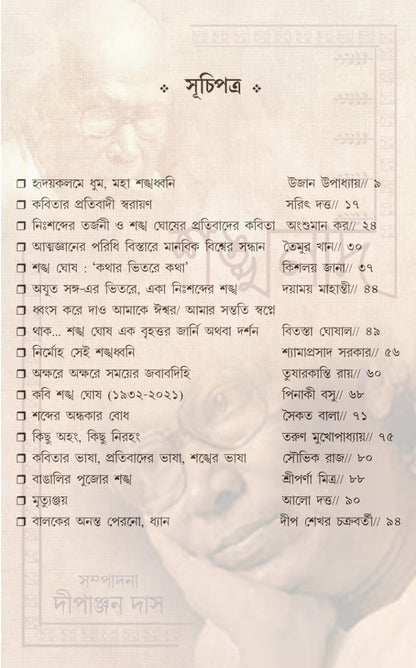 ❖ সূচিপত্র ❖
শঙ্খনাদ
❒ হৃদয়কলমে ধুম, মহা শঙ্খধ্বনি উজান উপাধ্যায়// ৯
❒ কবিতার প্রতিবাদী স্বরায়ণ সরিৎ দত্ত// ১৭
❒ নিঃশব্দের তর্জনী ও শঙ্খ ঘোষের প্রতিবাদের কবিতা অংশুমান কর// ২৪
❒ আত্মজ্ঞানের পরিধি বিস্তারে মানবিক বিশ্বের সন্ধান তৈমুর খান// ৩০
❒ শঙ্খ ঘোষ : ‘কথার ভিতরে কথা’ কিশলয় জানা// ৩৭
❒ অযুত সঙ্গ-এর ভিতরে, একা নিঃশব্দের শঙ্খ দয়াময় মাহান্তী// ৪৪
❒ ধ্বংস করে দাও আমাকে ঈশ্বর/ আমার সন্ততি স্বপ্নে
❒ থাক... শঙ্খ ঘোষ এক বৃহত্তর জার্নি অথবা দর্শন বিতস্তা ঘোষাল// ৪৯
❒ নির্মোহ সেই শঙ্খধ্বনি শ্যামাপ্রসাদ সরকার// ৫৬
❒ অক্ষরে অক্ষরে সময়ের জবাবদিহি তুষারকান্তি রায়// ৬০
❒ কবি শঙ্খ ঘোষ (১৯৩২-২০২১) পিনাকী বসু// ৬৮
❒ শব্দের অন্ধকার বোধ সৈকত বালা// ৭১
❒ কিছু অহং, কিছু নিরহং তরুণ মুখোপাধ্যায়// ৭৫
❒ কবিতার ভাষা, প্রতিবাদের ভাষা, শঙ্খের ভাষা সৌভিক রাজ// ৮০
❒ বাঙালির পুজোর শঙ্খ শ্রীপর্ণা মিত্র// ৮৮
❒ মৃত্যুঞ্জয় আলো দত্ত// ৯০
❒ বালকের অনন্ত পেরনো, ধ্যান দীপ শেখর চক্রবর্তী// ৯৪
সম্পাদনা
দীপাঞ্জন দাস